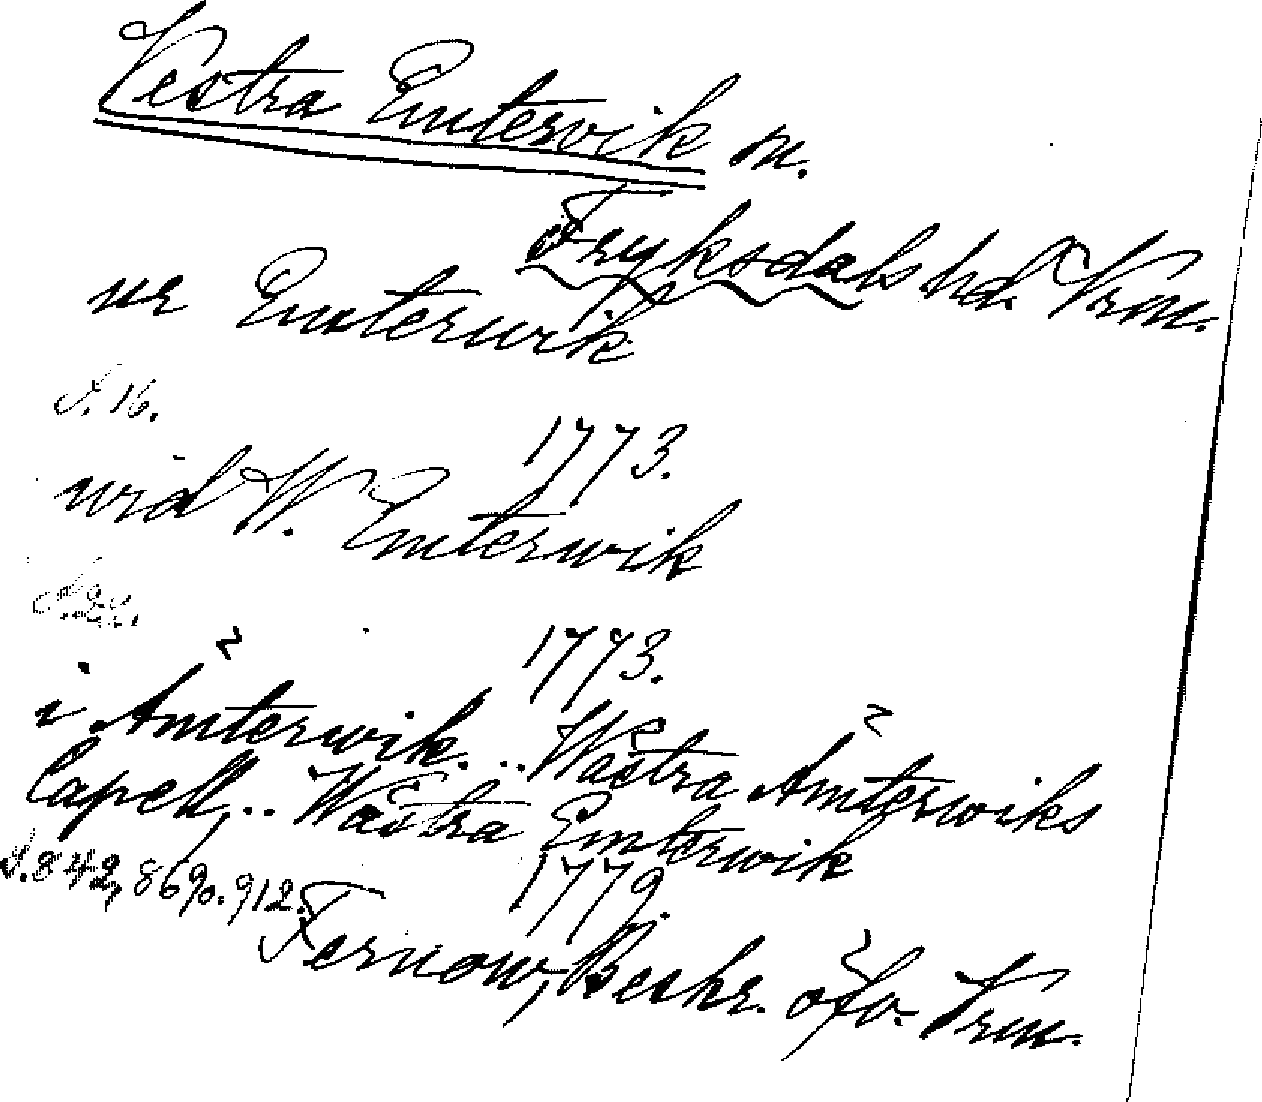 Vestra Emtervik sn.
Fryksdals hd. Vrm.
ur Emterwik
S. 16. 1773.
wid W. Emterwik
S. 24. 1773.
i Ämterwik... Wästra Ämterwiks
Capell,.. Wästra Emterwik
S. 842, 869 o. 912. 1779.
Fernow, Beskr. öfv. Vrm.